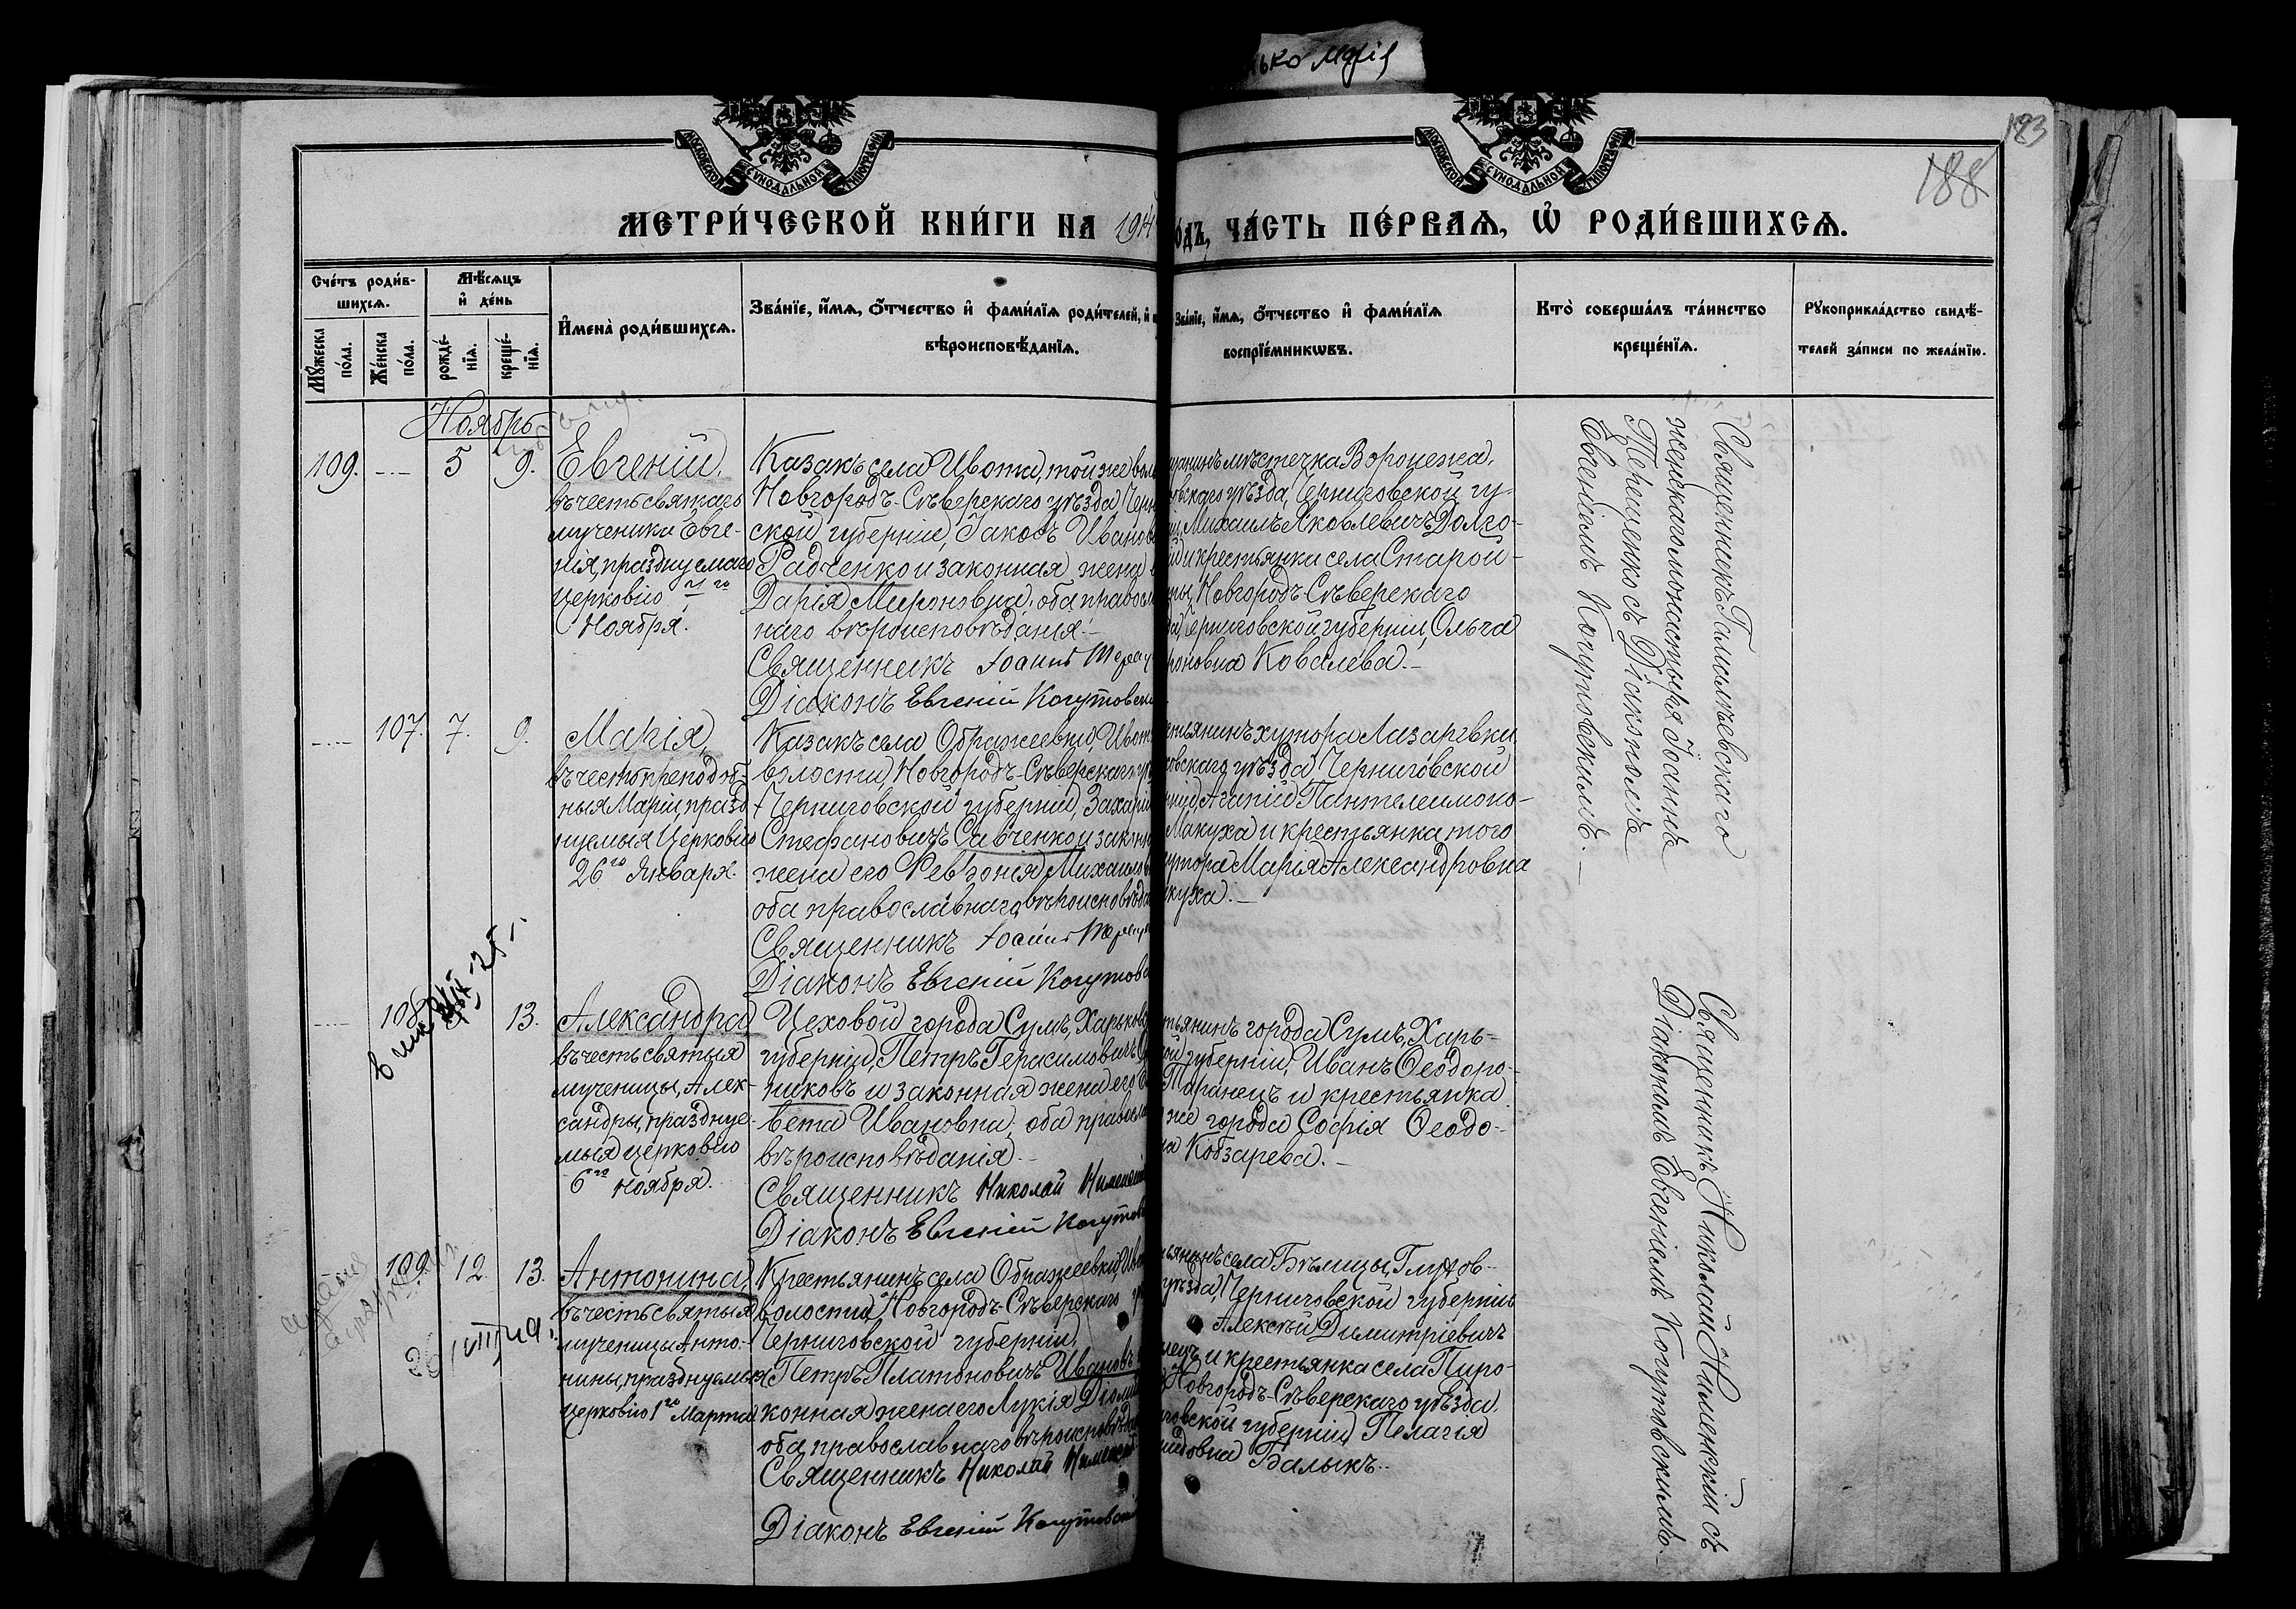 ько Марія
183
188
МОСКОВСКОЙ СѴНОДАЛЬНОЙ ТИПОГРАФІИ
МОСКОВСКОЙ СѴНОДАЛЬНОЙ ТИПОГРАФІИ
МЕТРИ́ЧЕСКОЙ КНИ́ГИ НА 1914
о́дъ, ЧА́СТЬ ПЕ́РВАѦ, Ѡ҆ РОДИ́ВШИХСѦ.
Сче́тъ роди́в-
шихсѧ.
Мꙋ́жеска
по́ла.
Же́нска
по́ла.
Мѣ́сѧцъ
и҆ де́нь
рожде́-
нїѧ.
креще́-
нїѧ.
И҆мена̀ роди́вшихсѧ.
Зва́нїе, и҆́мѧ, ѻ҆́тчество и҆ фами́лїѧ роди́телей, и҆
вѣроисповѣ́данїѧ.
Зва́нїе, и҆́мѧ, ѻ҆́тчество и҆ фами́лїѧ
воспрїе́мникѡвъ.
Кто̀ соверша́лъ та́инство
креще́нїѧ.
Рꙋкоприкла́дство свидѣ́-
телей за́писи по жела́нїю.
Ноябрь
109. — 5 9.
Евгеній,
въ честь святаго
мученика Евге-
нія, празднуемаго
Церковію 7го
Ноября.
Казакъ села Ивота, той же воло
Новгородъ-Сѣверскаго уѣзда, Черн
ской губерніи, Іаковъ Иванов
Радченко и законная жена
Дарія Мироновна, оба правосл
наго вѣроисповѣданія.
Священникъ Іоаннъ Терещ
Діаконъ Евгеній Когутовск
щанинъ мѣстечка Воронежа,
овскаго уѣзда, Черниговской гу-
Михаилъ Яковлевичъ Долго-
й и крестьянка села Старой
Новгородъ-Сѣверскаго
Черниговской губерніи, Ольга
роновна Ковалева.—
Священникъ Гамалѣевскаго
женскаго монастыря Іоаннъ
Терещенко съ Діакономъ
Евгеніемъ Когутовскимъ.—
— 107. 7. 9.
Марія,
въ честь преподоб-
ныя Маріи, празд-
нуемыя Церковію
26го Января.
Казакъ села Ображеевки, Ивот
волости, Новгородъ-Сѣверскаго у
Черниговской губерніи, Захарій
Стефановичъ Савченко и законн
жена его Февронія Михаило
оба православнаго вѣроисповѣда
Священникъ Іоаннъ Терещ
Діаконъ Евгеній Когутовс
стьянинъ хутора Лазаревки,
овскаго уѣзда, Черниговской
Агапій Пантелеимоно-
Макуха и крестьянка того
хутора Марія Александровна
куха.—
— 108. 13.
Александра,
въ честь святыя
мученицы Алек-
сандры, празднуе-
мыя церковію
6го Ноября.
Цеховой города Сумъ, Харьков
губерніи, Петръ Герасимовичъ
никовъ и законная жена его
вета Ивановна, оба правосла
вѣроисповѣданія.—
Священникъ Николай
Діаконъ Евгеній Когутов
тьянинъ города Сумъ, Харь-
ой губерніи, Иванъ Ѳеодоро-
Таранецъ и крестьянка
же города Софія Ѳеодо-
на Кобзарева.—
109. 12. 13.
Антонина,
въ честь святыя
мученицы Анто-
нины, празднуемыя
Церковію 1го Марта.
Крестьянинъ села Ображеевки, Иво
волости, Новгородъ-Сѣверскаго у
Черниговской губерніи,
Петръ Платоновичъ Ивановъ
конная жена его Лукія Діоми
оба православнаго вѣроисповѣда
Священникъ Николай
Діаконъ Евгеній Когутовскій
ьянинъ села Бѣлицы, Глухов-
уѣзда, Черниговской губерніи
Алексѣй Димитріевичъ
нецъ и крестьянка села Пиро-
Новгородъ-Сѣверскаго уѣзда,
говской губерніи, Пелагія
довна Балыкъ.—
Священникъ Николай съ
Діакономъ Евгеніемъ Когутовскимъ.—